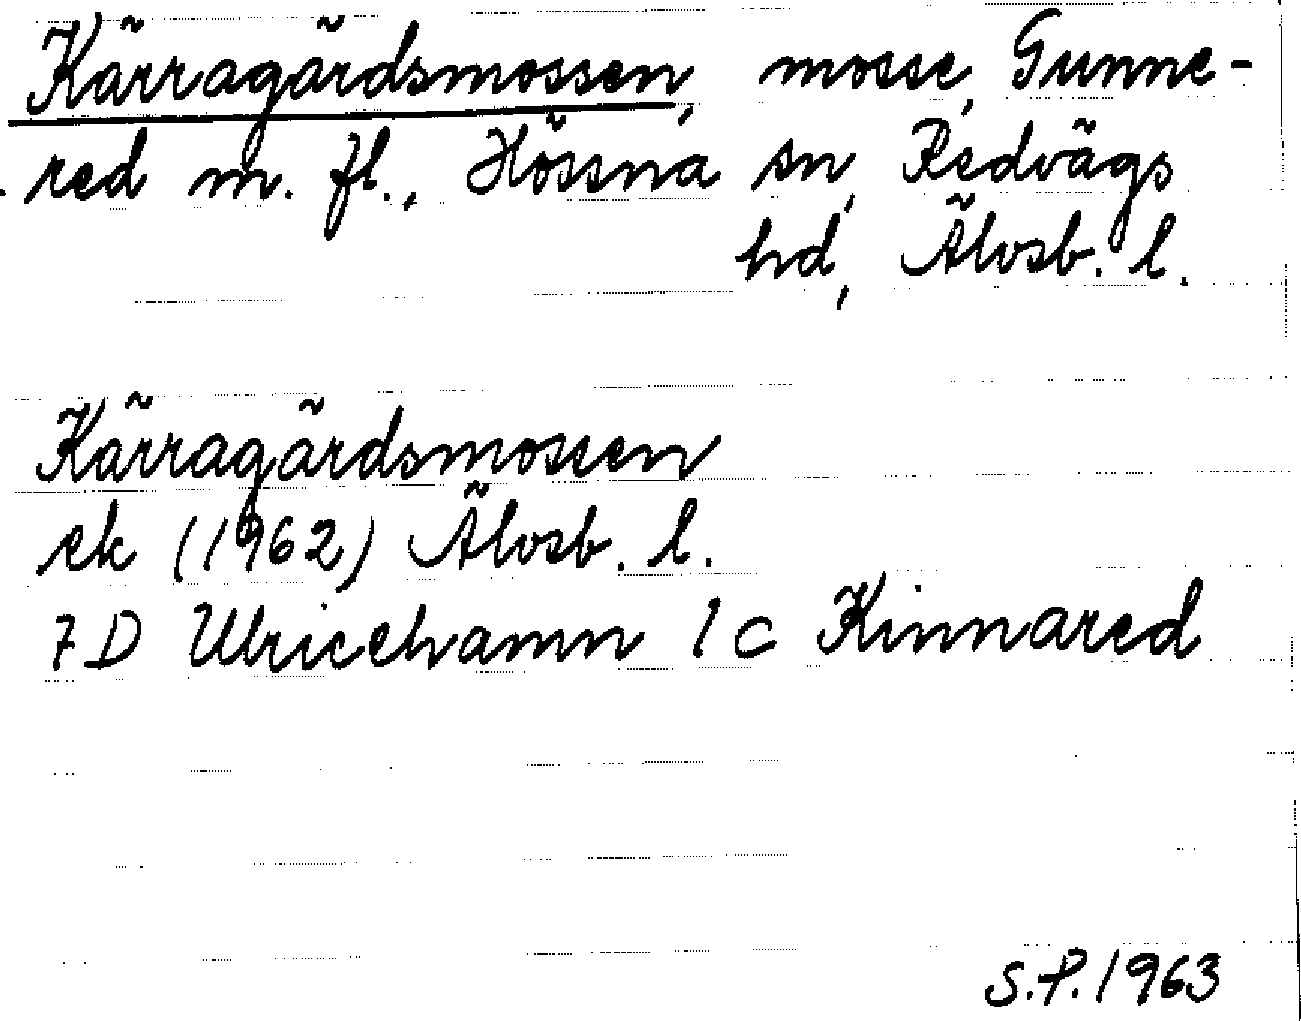 Kärragärdsmossen, mosse, Gunne-
red m. fl., Hössna sn, Redvägs
hd, Älvsb. l.
Kärragärdsmossen
ek (1962) Älvsb. l.
7 D Ulricehamn 1 c Kinnared
S.P. 1963